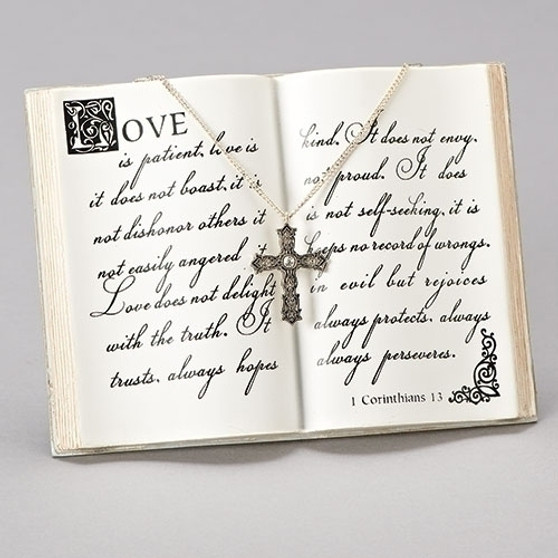 LOVE
is patient, love is kind. It does not envy,
it does not boast, it is not proud. It does
not dishonor others it is not self-seeking, it is
not easily angered it keeps no record of wrongs.
Love does not delight in evil but rejoices
with the truth. It always protects, always
trusts, always hopes always perseveres.
1 Corinthians 13